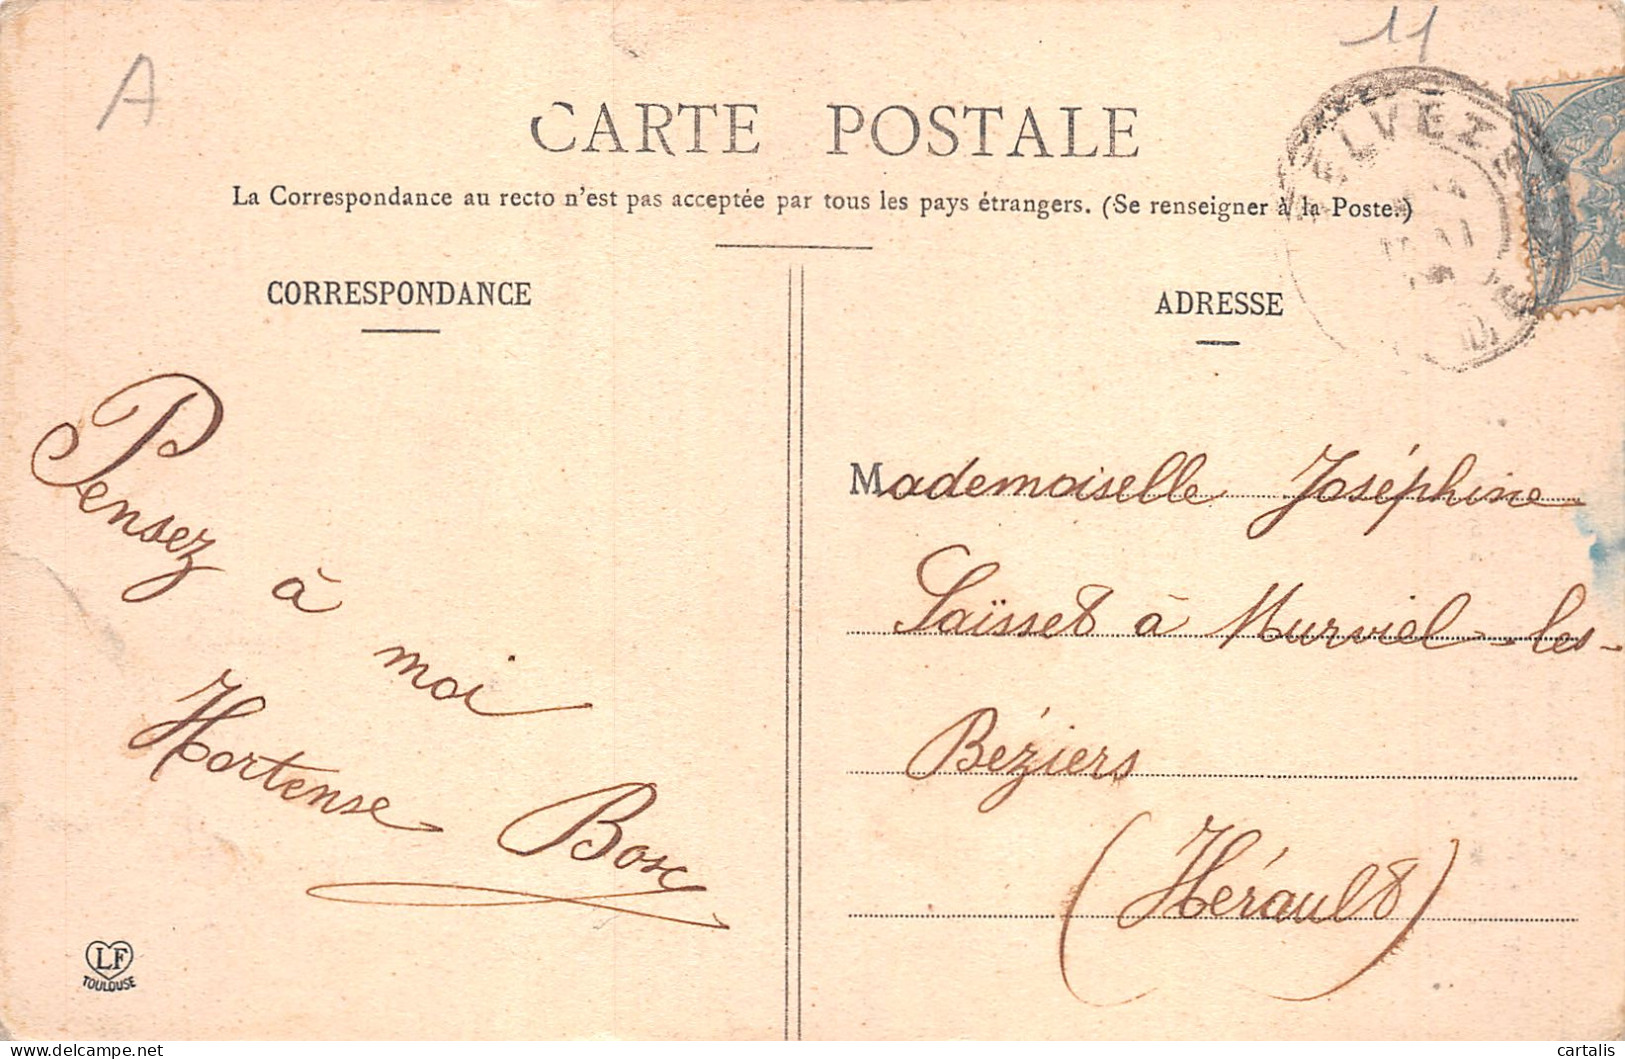 11
A
CARTE POSTALE
La Correspondance au recto n'est pas acceptée par tous les pays étrangers. (Se renseigner à la Poste.)
CORRESPONDANCE
Pensez
à
moi
Hortense Bosc
LF
TOULOUSE
ADRESSE
Mademoiselle Joséphine
Laïsset à Murviel-les-
Béziers
(Hérault)
cartalis
delcampe.net